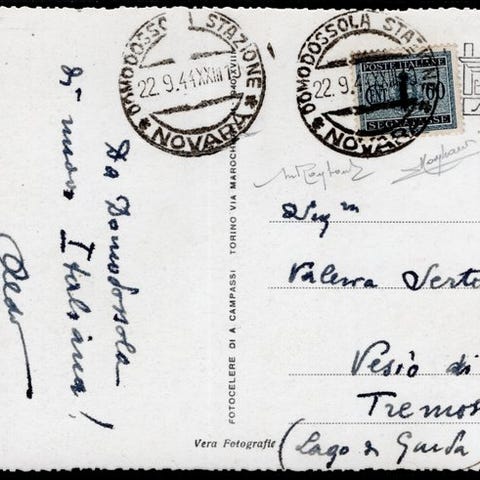 DOMODOSSOLA STAZIONE
22.9.44 XXIII
* NOVARA *
DOMODOSSOLA STAZIONE
22.9.44
* NOVARA
POSTE ITALIANE
CENT. 60
SEGNATASSE
Da Domodossola
di nuovo
Italiana!
Aldo
FOTOCELERE DI A. CAMPASSI TORINO VIA MAROCH
Vera Fotografie
Sig.na
Valeria Serte
Vesio di
Tremos
(Lago di Garda